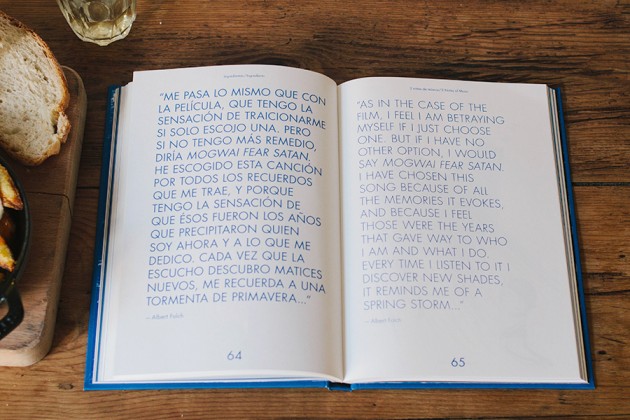 "ME PASA LO MISMO QUE CON
LA PELÍCULA, QUE TENGO LA
SENSACIÓN DE TRAICIONARME
SI SOLO ESCOJO UNA. PERO
SI NO TENGO MÁS REMEDIO,
DIRÍA MOGWAI FEAR SATAN.
HE ESCOGIDO ESTA CANCIÓN
POR TODOS LOS RECUERDOS
QUE ME TRAE, Y PORQUE
TENGO LA SENSACIÓN DE
QUE ÉSOS FUERON LOS AÑOS
QUE PRECIPITARON QUIEN
SOY AHORA Y A LO QUE ME
DEDICO. CADA VEZ QUE LA
ESCUCHO DESCUBRO MATICES
NUEVOS, ME RECUERDA A UNA
TORMENTA DE PRIMAVERA..."
— Albert Folch
64
"AS IN THE CASE OF THE
FILM, I FEEL I AM BETRAYING
MYSELF IF I JUST CHOOSE
ONE. BUT IF I HAVE NO
OTHER OPTION, I WOULD
SAY MOGWAI FEAR SATAN.
I HAVE CHOSEN THIS
SONG BECAUSE OF ALL
THE MEMORIES IT EVOKES,
AND BECAUSE I FEEL
THOSE WERE THE YEARS
THAT GAVE WAY TO WHO
I AM AND WHAT I DO.
EVERY TIME I LISTEN TO IT I
DISCOVER NEW SHADES,
IT REMINDS ME OF A
SPRING STORM..."
— Albert Folch
65